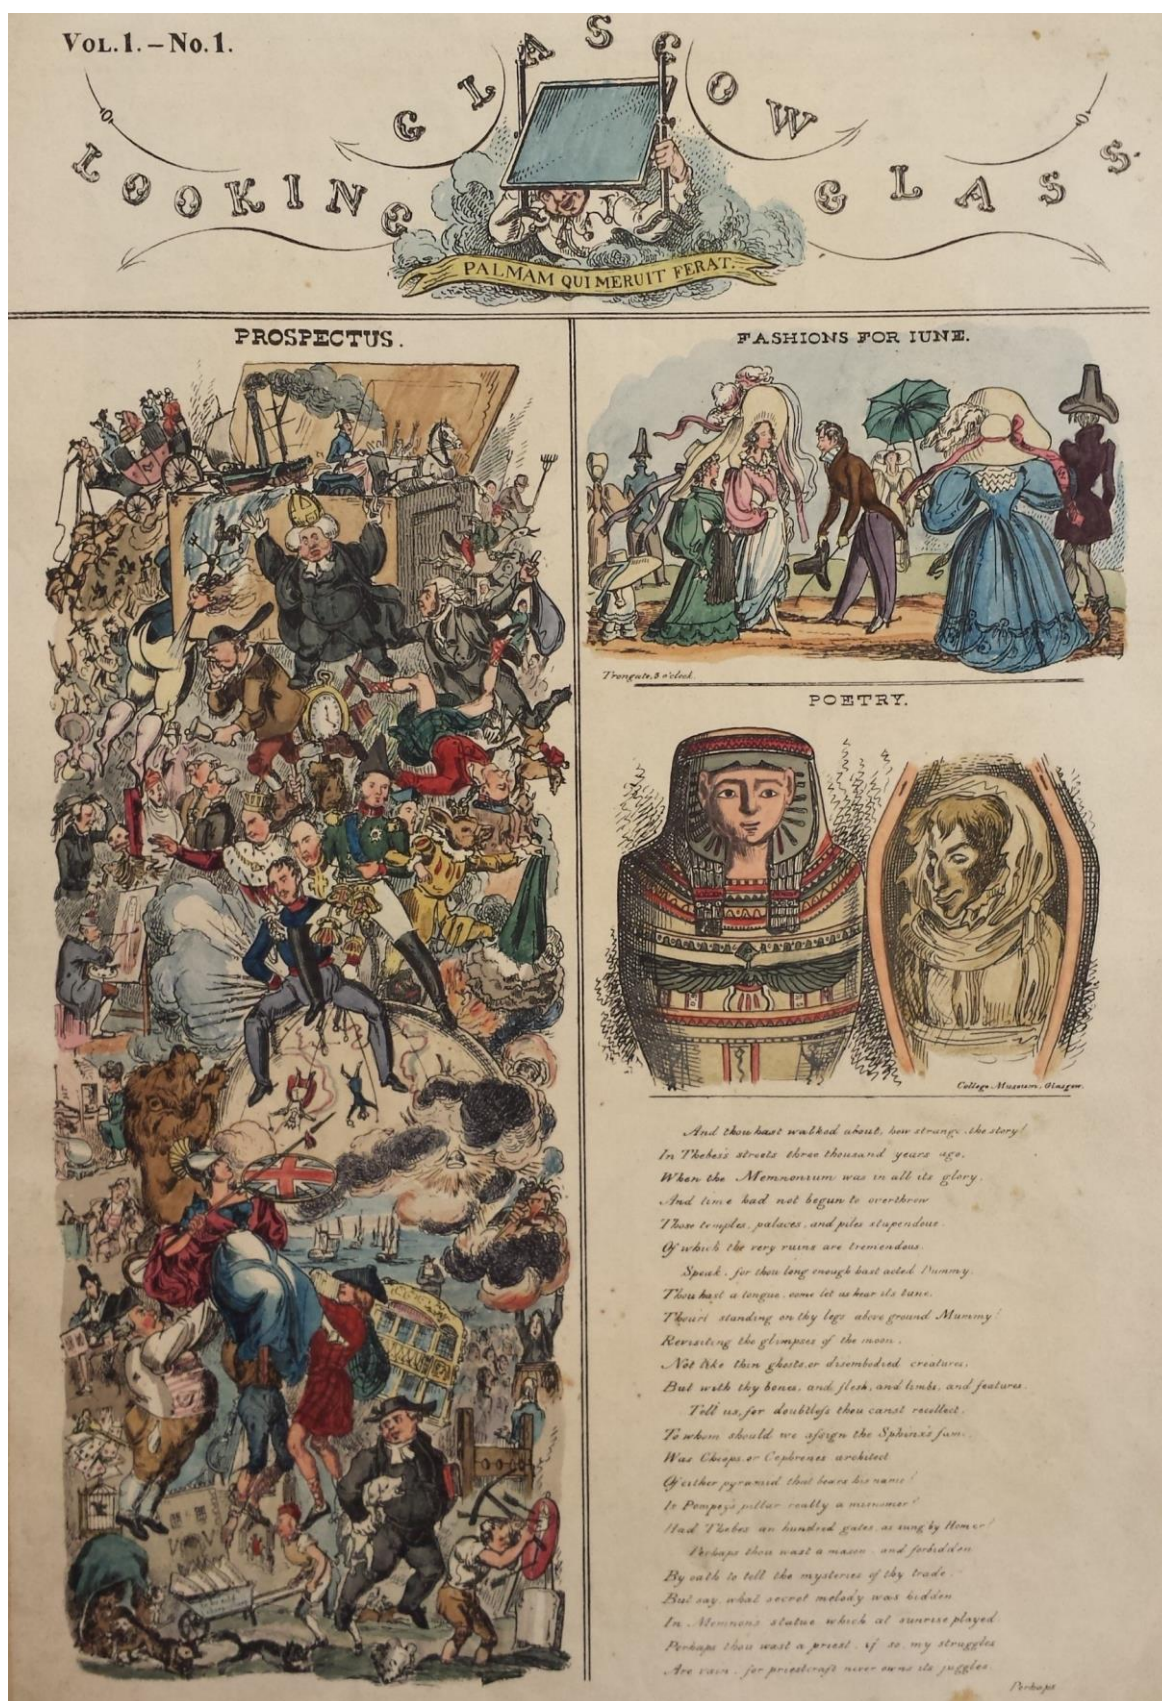 VOL.1.–No.1.
GLASGOW
LOOKING GLASS.
PALMAM QUI MERUIT FERAT.
PROSPECTUS.
FASHIONS FOR IUNE.
Trongate, 3 o'clock.
POETRY.
College Museum, Glasgow.
And thou hast walked about, how strange the story!
In Thebes's streets three thousand years ago,
When the Memnonium was in all its glory,
And time had not begun to overthrow
Those temples, palaces, and piles stupendous
Of which the very ruins are tremendous.
Speak, for thou long enough hast acted Dummy,
Thou hast a tongue, come let us hear its tune,
Thou'rt standing on thy legs above ground Mummy!
Revisiting the glimpses of the moon,
Not like thin ghosts or disembodied creatures,
But with thy bones, and flesh, and limbs, and features.
Tell us, for doubtless thou canst recollect,
To whom should we assign the Sphinx's fame
Was Cheops or Cephrenes architect
Of either pyramid that bears his name?
Is Pompey's pillar really a misnomer?
Had Thebes an hundred gates, as sung by Homer?
Perhaps thou wast a mason, and forbidden
By oath to tell the mysteries of thy trade,
But say, what secret melody was hidden
In Memnon's statue which at sunrise played.
Perhaps thou wast a priest, if so, my struggles
Are vain, for priestcraft never owns its juggles.
Perhaps